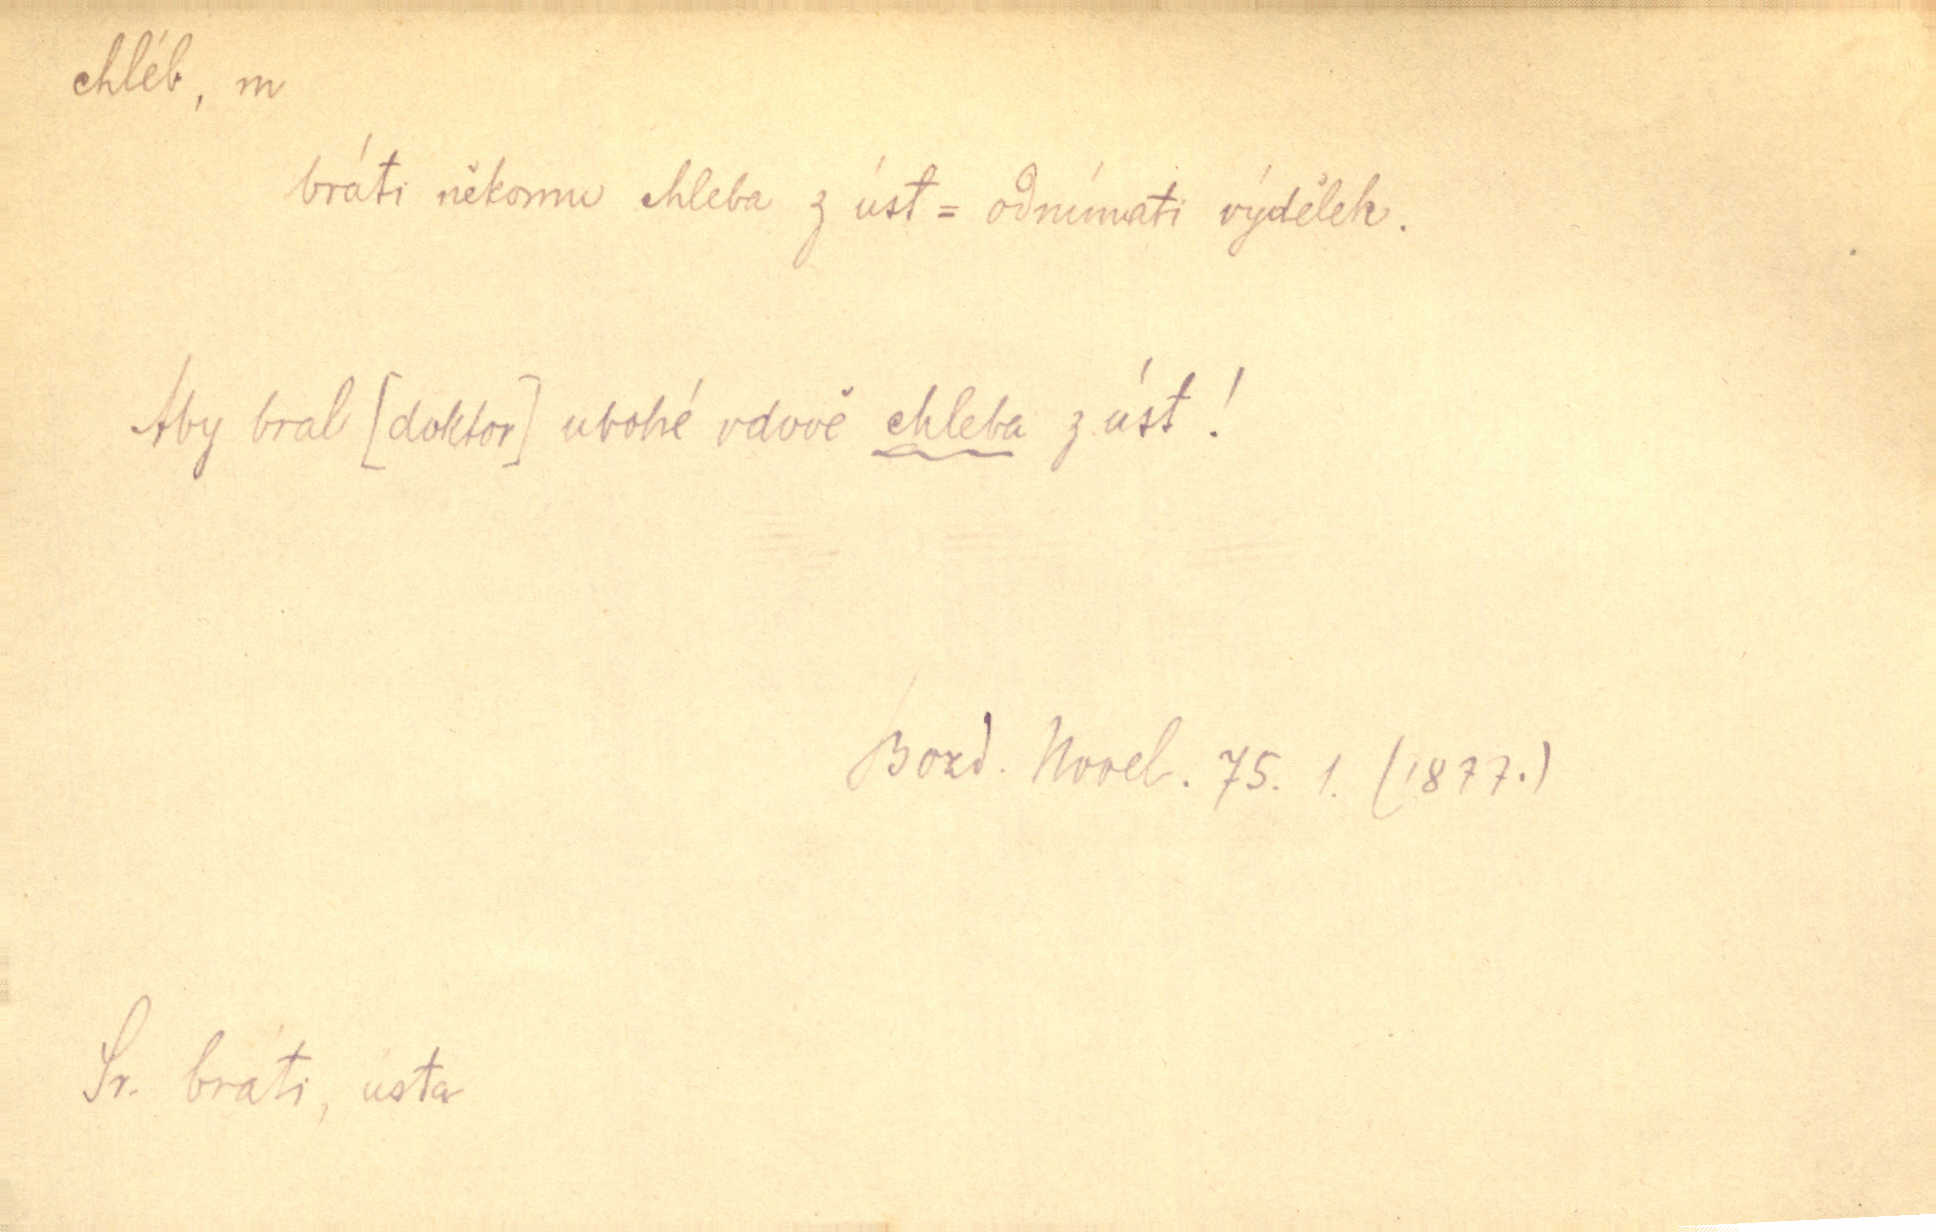 chléb, m
bráti někomu chleba z úst = odnímati výdělek.
Aby bral [doktor] ubohé vdově chleba z úst!
Bozd. Novel. 75. 1. (1877.)
Sr. bráti, ústa